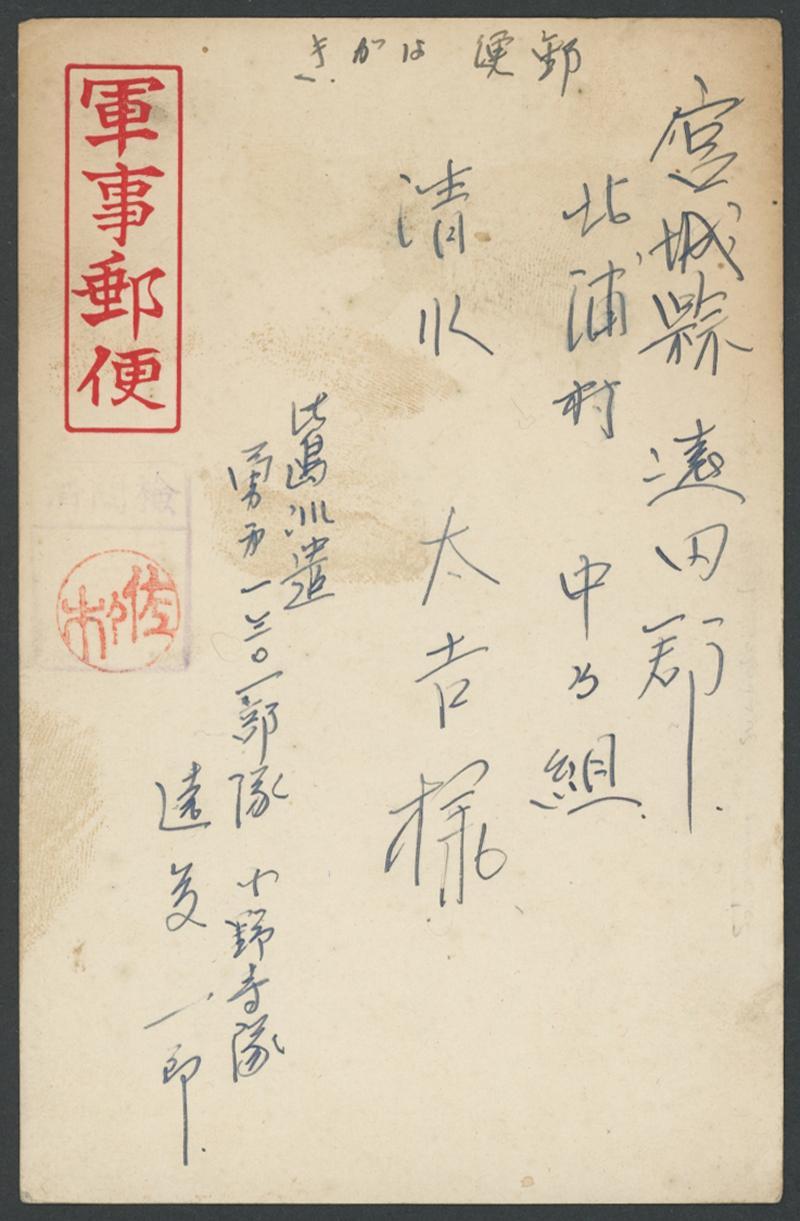 郵便はがき
宮城縣 遠田郡
北浦村 中乃組
清水 太吉 様
比島派遣
勇第一三〇一部隊 小野寺隊
遠 一郎
軍事郵便
検閲済
佐々木